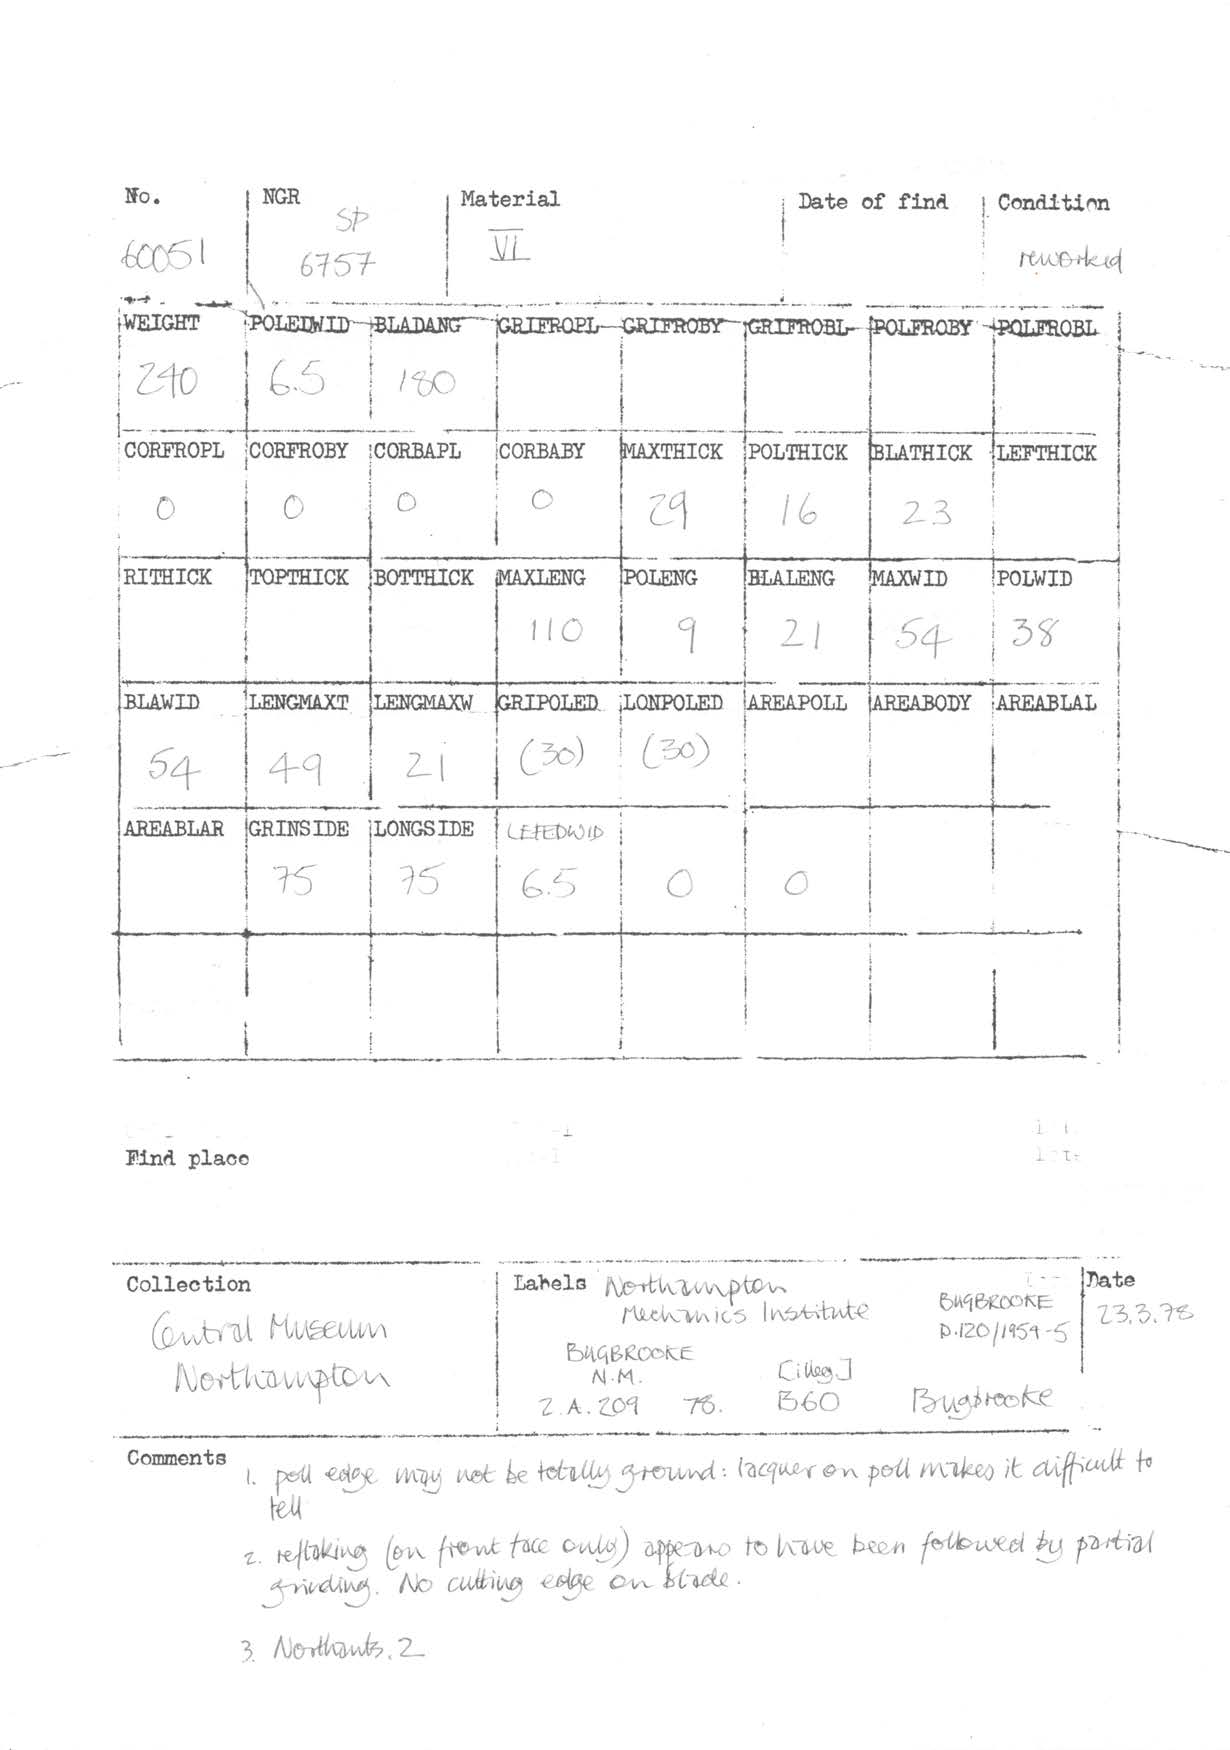 No. NGR Material Date of find Condition
60051 SP 6757 VI reworked
WEIGHT POLEDWID BLADANG GRIFROPL GRIFROBY GRIFROBL POLFROBY POLFROBL
240 6.5 180
CORFROPL CORFROBY CORBAPL CORBABY MAXTHICK POLTHICK BLATHICK LEFTHICK
0 0 0 0 29 16 23
RITHICK TOPTHICK BOTTHICK MAXLENG POLENG BLALENG MAXWID POLWID
110 9 21 54 38
BLAWID LENGMAXT LENGMAXW GRIPOLED LONPOLED AREAPOLL AREABODY AREABLAL
54 49 21 (30) (30)
AREABLAR GRINSIDE LONGSIDE LEFEDWID
75 75 6.5 0 0
Find place
Collection
Central Museum
Northampton
Labels Northampton
Mechanics Institute
BUGBROOKE
D.120/1954-5
BUGBROOKE
N.M. [illeg.]
2.A.209 78. B60 Bugbrooke
Date
23.3.78
Comments
1. poll edge may not be totally ground: lacquer on poll makes it difficult to
tell
2. reflaking (on front face only) appears to have been followed by partial
grinding. No cutting edge on blade.
3. Northants. 2